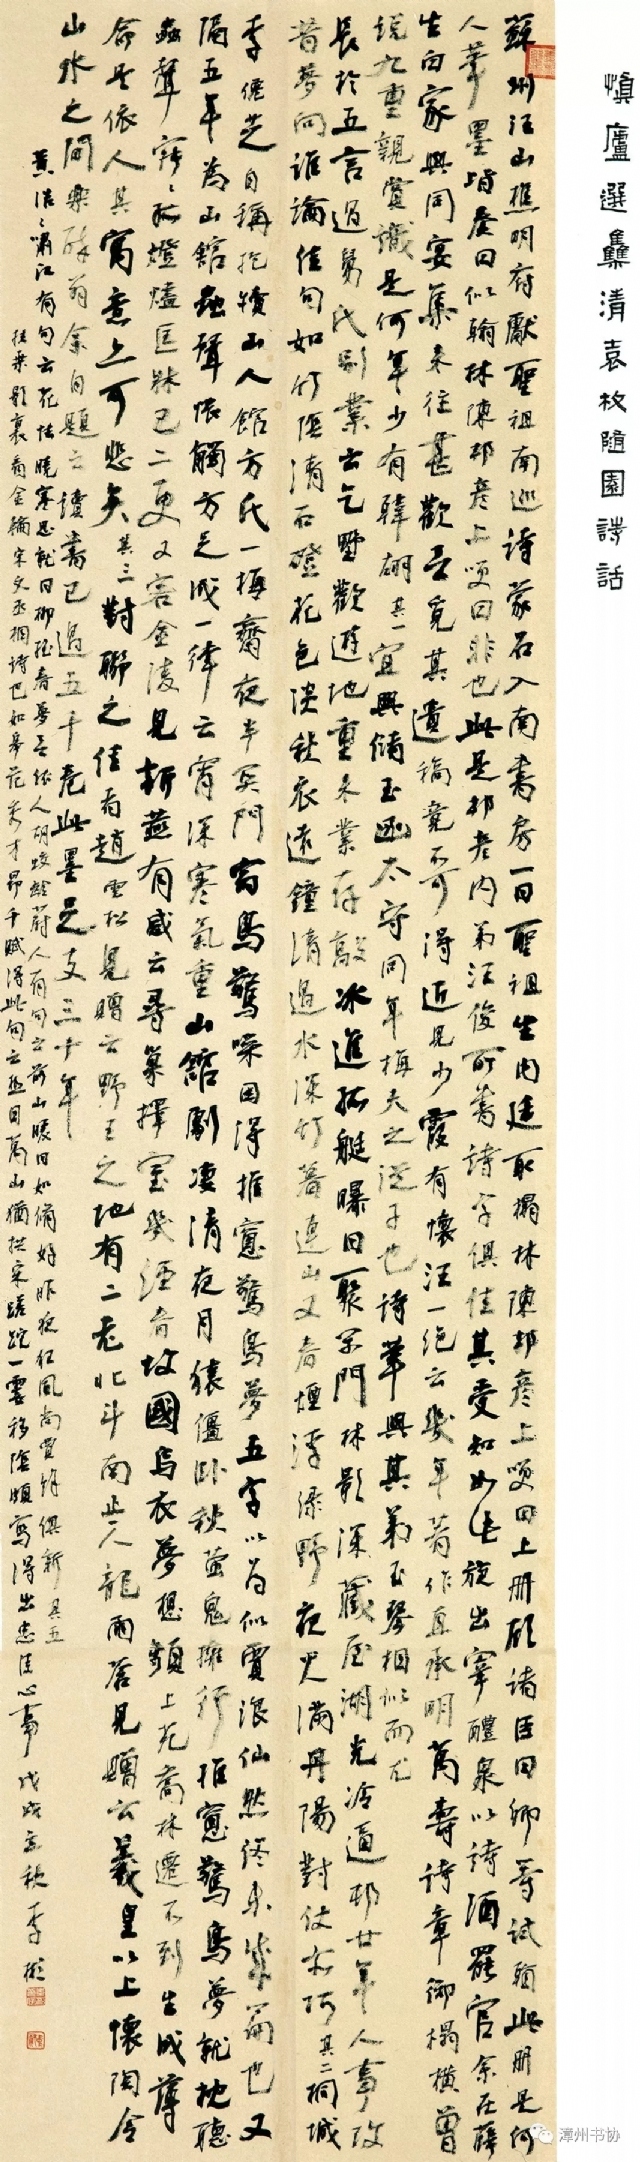 慎廬選集清袁枚隨園詩話
蘇州汪山樵明府獻聖祖南巡詩蒙召入南書房一日聖祖坐內廷取搨林陳邦彥上哭曰上冊顧諸臣曰卿等試猜此冊是何
人筆墨皆奏曰似翰林陳邦彥上哭曰非也此是邦彥內弟汪俊所書詩字俱佳其受知如此旋出宰醴泉以詩酒罷官余在蘇
生白家與同宴集來往甚歡云覓其遺稿竟不可得近見少霞有懷汪一絕云幾年著作直承明萬壽詩章御榻橫曾
說九重親賞識是何年少有韓翃其一宜興儲玉函太守同年梅夫之從子也詩筆與其弟玉琴相似而尤
長於五言過舅氏別業云乞墅歡遊地重來業存敲冰進孤艇曝日聚閒門林影深藏屋湖光冷逼邨廿年人事改
昔夢向誰論佳句如竹陰清石磴花色淡秋衣遠鐘清過水深竹暮連山又看煙浮綠野夜火滿丹陽對仗亦巧其二桐城
李僊芝自稱抱犢山人館方氏一梅齋夜半叩門宿鳥驚噪因得推窗驚鳥夢五字以為似賈浪仙然終未成篇也又
隔五年為山館蟲聲悵觸方足成一律云宵深寒氣重山館劇淒清夜月猿僵臥秋螢鬼擁行推窗驚鳥夢就枕聽
蟲聲寂寂孤燈燼匡牀已二更又客金陵見新燕有感云尋巢擇室幾經看故國烏衣夢想頻上苑喬林遷不到生成薄
命是依人其寓意亦可悲矣其三對聯之佳者趙雲松見贈云野王之地有二老北斗南此一人龍雨蒼見贈云羲皇以上懷陶令
山水之間樂醉翁余自題云讀書已過五千卷此墨足支三十年
黃浩浩嘯江有句云花怯曉寒思就日柳經春夢云依人胡蛟齡蔚人有句云前山暖日如僧好昨夜狂風尚賣餘俱新其五
桂葉影裏看金輪宋文丞相詩也如皋范秀才昂千賦得此句云亟目萬山猶拱宋蹉跎一雲移陰頗寫得出忠臣心事 戊戌立秋 李彬
漳州书协